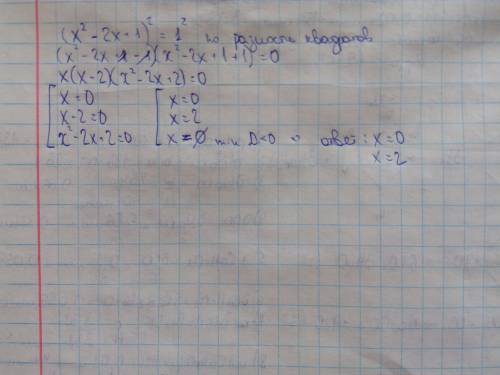 (x² - 2x + 1)² = 1² по разности квадратов
(x² - 2x + 1 - 1)(x² - 2x + 1 + 1) = 0
x(x-2)(x² - 2x + 2) = 0
[ x = 0 [ x = 0
x - 2 = 0 x = 2
x² - 2x + 2 = 0 x = ∅ т.к. D < 0 ответ: x = 0
x = 2